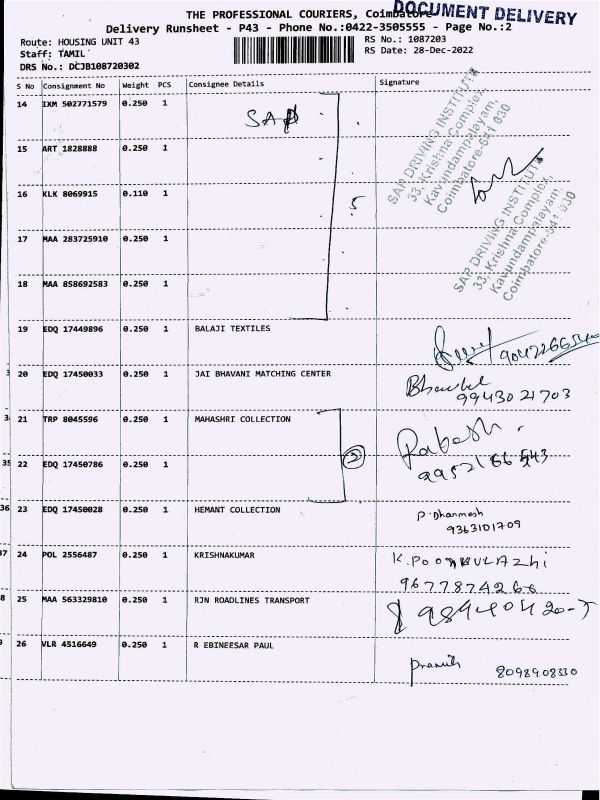 DOCUMENT DELIVERY
THE PROFESSIONAL COURIERS, Coimbatore
Delivery Runsheet - P43 - Phone No.:0422-3505555 - Page No.:2
Route: HOUSING UNIT 43
RS No.: 1087203
Staff: TAMIL
RS Date: 28-Dec-2022
DRS No.: DCJB108720302
S No Consignment No Weight PCS Consignee Details Signature
14 IXM 502771579 0.250 1
SAP
15 ART 1828888 0.250 1
SAP DRIVING INSTITUTE
33, Krishna Complex,
Kavundampalayam,
Coimbatore-641 030
16 KLK 8069915 0.110 1
5
17 MAA 283725910 0.250 1
SAP DRIVING INSTITUTE
33, Krishna Complex,
Kavundampalayam,
Coimbatore-641 030
18 MAA 858692583 0.250 1
19 EDQ 17449896 0.250 1 BALAJI TEXTILES
3 20 EDQ 17450033 0.250 1 JAI BHAVANI MATCHING CENTER
9943021703
3 21 TRP 8045596 0.250 1 MAHASHRI COLLECTION
Rakesh
2
35 22 EDQ 17450786 0.250 1
36 23 EDQ 17450028 0.250 1 HEMANT COLLECTION
P. Dharmesh
9363101709
37 24 POL 2556487 0.250 1 KRISHNAKUMAR
K.POONKULAZhi
8 25 MAA 563329810 0.250 1 RJN ROADLINES TRANSPORT
9 26 VLR 4516649 0.250 1 R EBINEESAR PAUL
8098908330